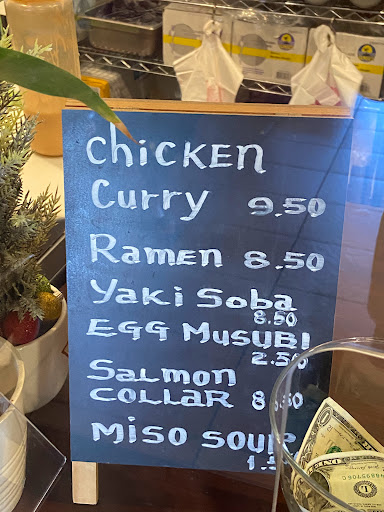 Chicken
Curry 9.50
Ramen 8.50
Yaki Soba
8.50
EGG MUSUBI
2.50
Salmon
COLLAR 8.50
Miso SOUP